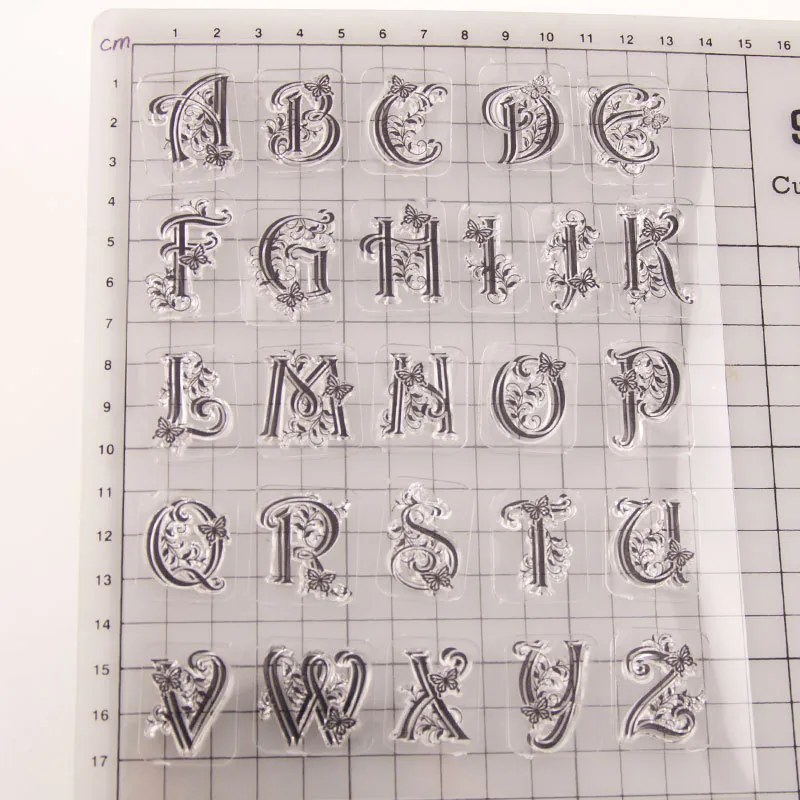 1 2 3 4 5 6 7 8 9 10 11 12 13 14 15 16
cm
1
2
3
4
5
6
7
8
9
10
11
12
13
14
15
16
17
A B C D E
F G H I J K
L M N O P
Q R S T U
V W X Y Z